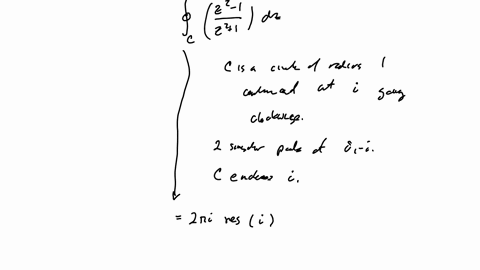 ∮_C ( (z²-1) / (z²+1) ) dz
C is a circle of radius 1
centered at i going
clockwise.
2 simple poles at i, -i.
C encloses i.
= 2πi res (i)